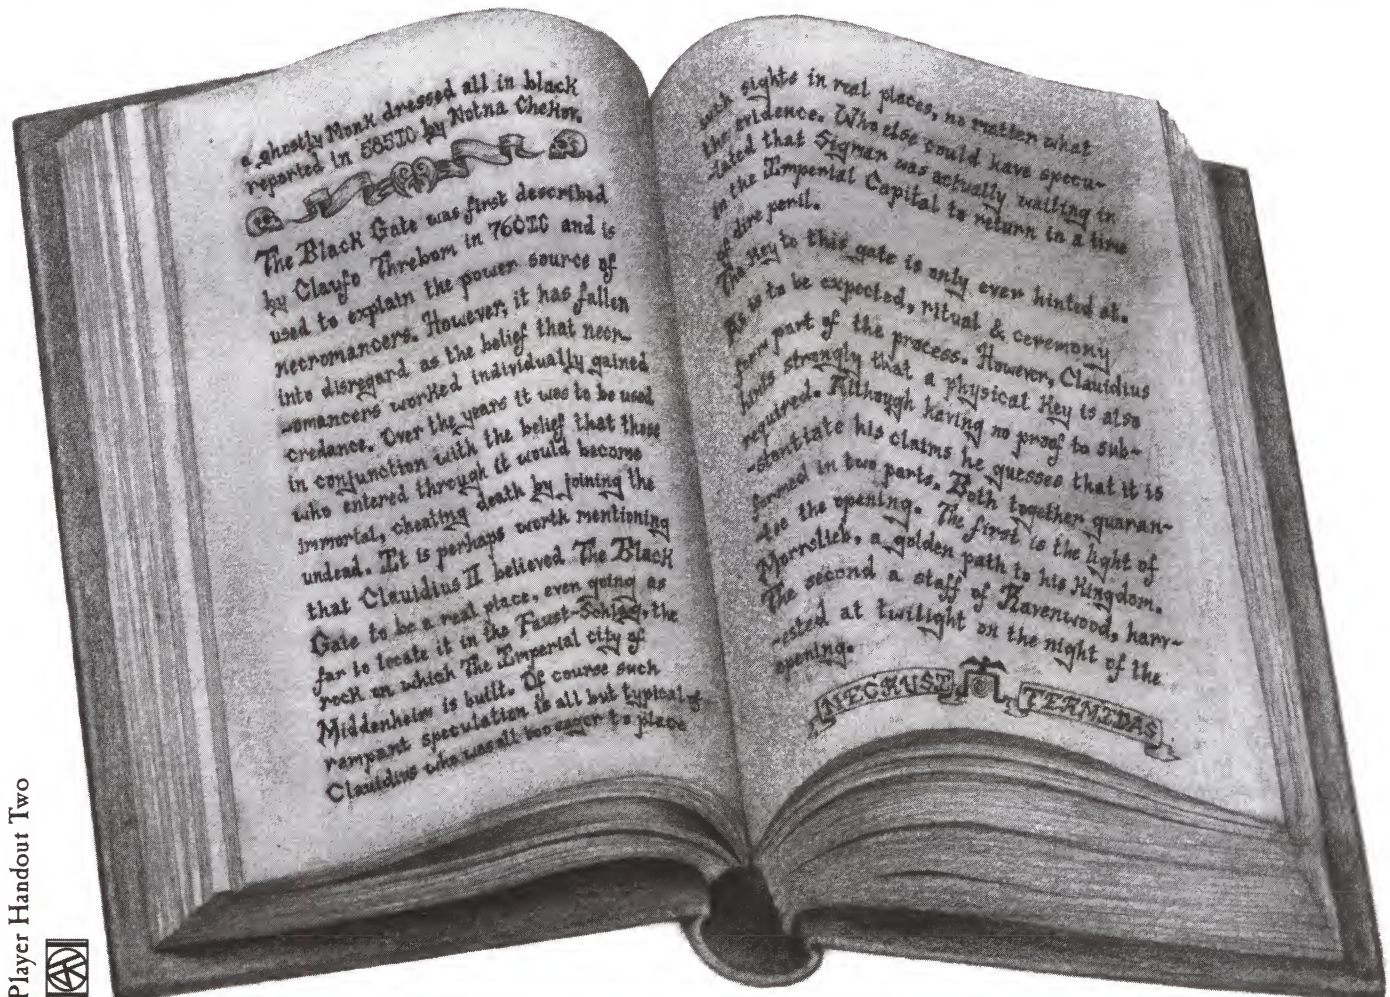 a ghostly Monk dressed all in black
reported in 585IC by Notna Chekov.
The Black Gate was first described
by Claufo Threbom in 760IC and is
used to explain the power source of
necromancers. However, it has fallen
into disregard as the belief that necr-
-omancers worked individually gained
credance. Over the years it was to be used
in conjunction with the belief that those
who entered through it would become
immortal, cheating death by joining the
undead. It is perhaps worth mentioning
that Clauidius II believed The Black
Gate to be a real place, even going as
far to locate it in the Faust-Schlag, the
rock on which The Imperial city of
Middenheim is built. Of course such
rampant speculation is all but typical of
Clauidius who was all too eager to place
such sights in real places, no matter what
the evidence. Who else could have specu-
-lated that Sigmar was actually waiting in
in the Imperial Capital to return in a time
of dire peril.
The Key to this gate is only ever hinted at.
As is to be expected, ritual & ceremony
form part of the process. However, Clauidius
hints strongly that a physical Key is also
required. Although having no proof to sub-
-stantiate his claims he guesses that it is
formed in two parts. Both together guaran-
-tee the opening. The first is the light of
Morrslieb, a golden path to his Kingdom.
The second a staff of Ravenwood, harv-
-ested at twilight on the night of the
opening.
NECAUST TERMIDAS
Player Handout Two